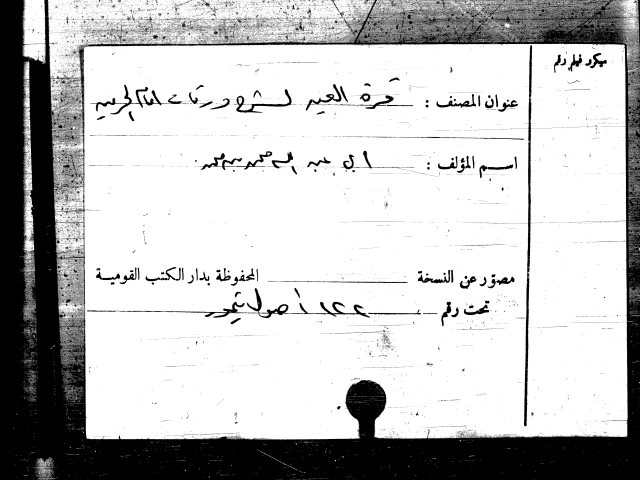 ميكروفيلم رقم
عنوان المصنف : قرة العين لشرح ورقات امام الحرمين
اسم المؤلف : ابي عبد الله محمد بن محمد
مصور عن النسخة المحفوظة بدار الكتب القومية
تحت رقم ١٢٢ أصول تيمور